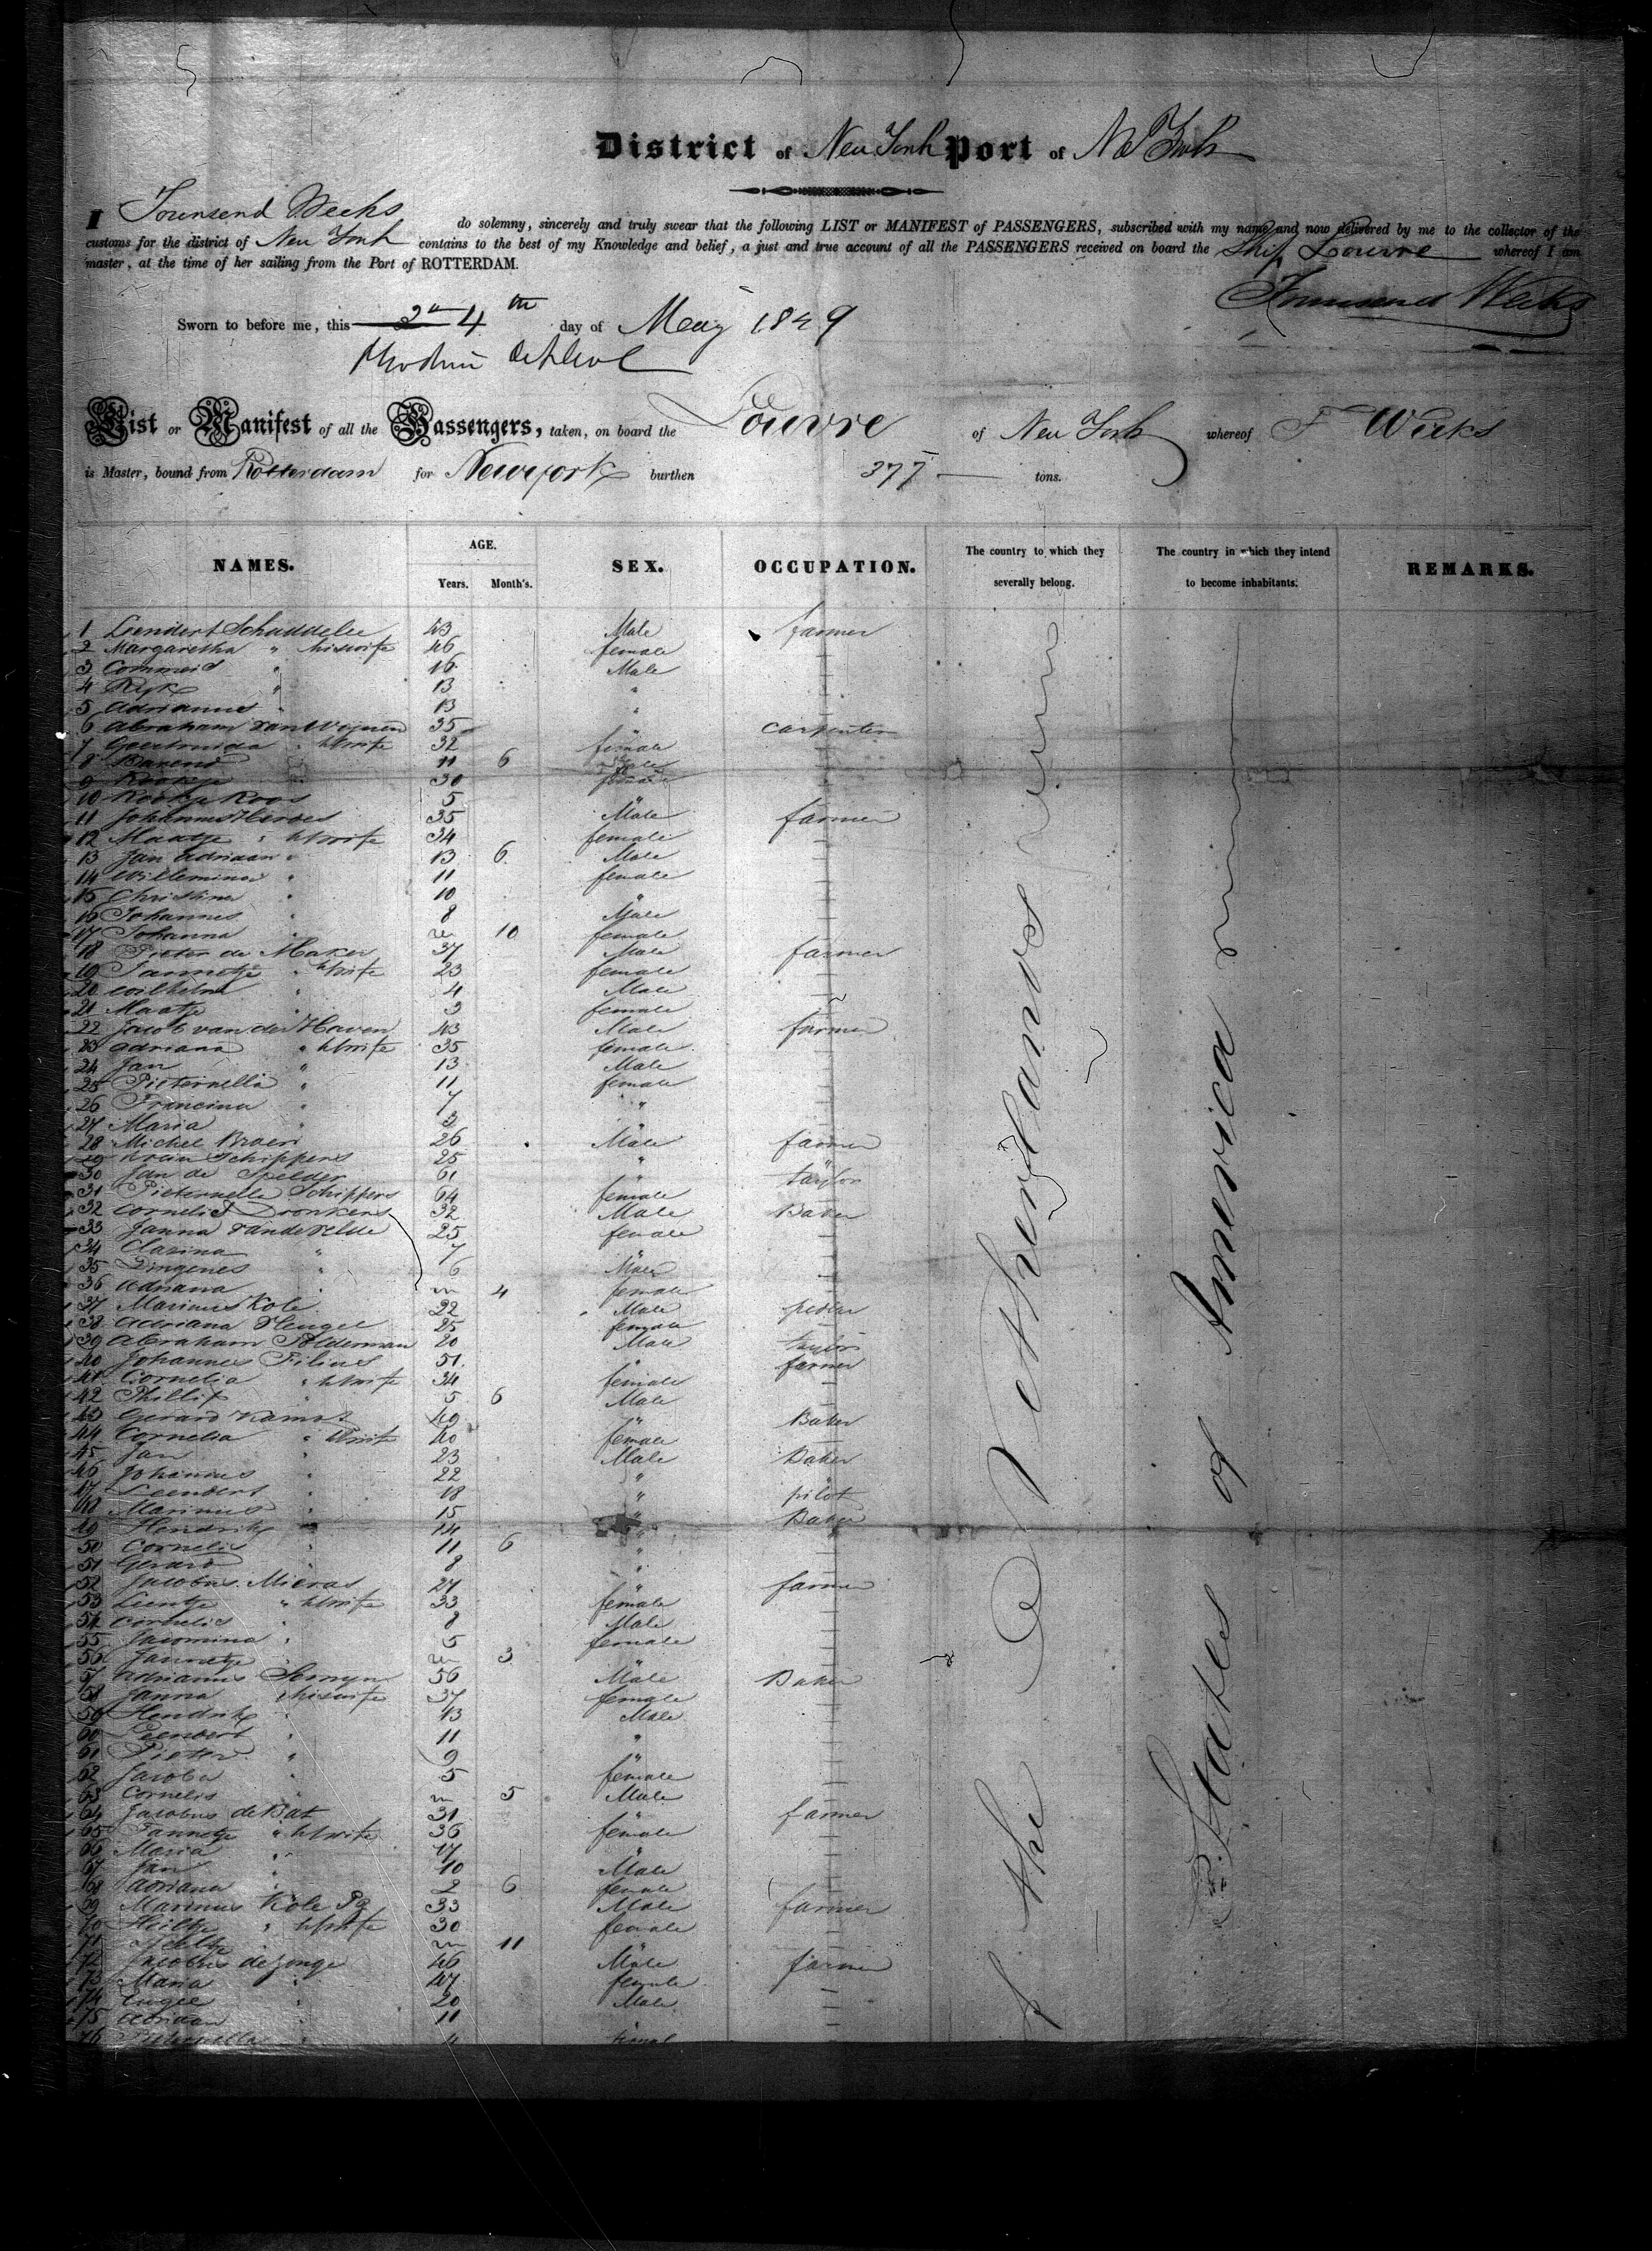 District of New York Port of New York
I Townsend Weeks do solemny, sincerely and truly swear that the following LIST or MANIFEST of PASSENGERS, subscribed with my name and now delivered by me to the collector of the
customs for the district of New York contains to the best of my Knowledge and belief, a just and true account of all the PASSENGERS received on board the Ship Louvre whereof I am
master, at the time of her sailing from the Port of ROTTERDAM.
Townsend Weeks
Sworn to before me, this 4th day of May 1849
List or Manifest of all the Passengers, taken, on board the Louvre of New York whereof T Weeks
is Master, bound from Rotterdam for Newyork burthen 377 tons.
NAMES. AGE. Years. Month's. SEX. OCCUPATION. The country to which they severally belong. The country in which they intend to become inhabitants. REMARKS.
of the Netherlands
U. States of America
1 Leendert Schaddelee 43 Male farmer
2 Margaretha " his wife 46 female
3 Commeis " 16 Male
4 Ryk " 13 "
5 Adrianus " 13 "
6 Abraham van Wijnen 35 " Carpenter
7 Geertruida " his wife 32 female
8 Barend 11 6 Male
9 Kootje 30 female
10 Kootje Koos 5 "
11 Johannes Herbes 35 Male farmer
12 Maatje " his wife 34 female
13 Jan Adriaan " 13 6 Male
14 Willemina " 11 female
15 Christina " 10 "
16 Johannes " 8 Male
17 Johanna " 10 female
18 Pieter de Maker 37 Male farmer
19 Jannetje " his wife 23 female
20 Wilhelm " 4 Male
21 Maatje " 3 female
22 Jacob van der Haven 43 Male farmer
23 Adriana " his wife 35 female
24 Jan " 13 Male
25 Pieternella " 11 female
26 Francina " 7 "
27 Maria " 3 "
28 Michel Braen 26 Male farmer
29 Schippers 25 " "
30 Jan de Spelder 61 " taylor
31 Pieternella Schippers 64 female
32 Cornelis Dronkers 32 Male Baker
33 Janna vande Velde 25 female
34 Clasina " 7 "
35 Dingenes " 6 Male
36 Adriana " 4 female
37 Marinus Kole 22 Male pedlar
38 Adriana Hengel 25 female
39 Abraham Polderman 20 Male taylor
40 Johannes Filius 51 " farmer
41 Cornelia " his wife 34 female
42 Phillip " 5 6 Male
43 Gerard Kamst 49 " Baker
44 Cornelia " his wife 40 female
45 Jan " 23 Male Baker
46 Johannes " 22 "
47 Leendert " 18 " pilot
48 Marinus " 15 " Baker
49 Hendrik " 14 "
50 Cornelis " 11 6 "
51 Gerard " 8 "
52 Jacobus Mieras 27 " farmer
53 Leentje " his wife 33 female
54 Cornelis " 8 Male
55 Jacomina " 5 female
56 Jannetje " 3 "
57 Adrianus Semyn 56 Male Baker
58 Janna " his wife 37 female
59 Hendrik " 13 Male
60 Leendert " 11 "
61 Pieter " 9 "
62 Jacoba " 5 female
63 Cornelis " 5 Male
64 Jacobus de Bat 31 " farmer
65 Jannetje " his wife 36 female
66 Maria " 17 "
67 Jan " 10 Male
68 Adriana " 2 6 female
69 Marinus Kole Pz 33 Male farmer
70 Neeltje " his wife 30 female
71 Neeltje " 11 "
72 Jacobus de Jonge 46 Male farmer
73 Maria " 47 female
74 " 20 Male
75 Adriaan " 11 "
76 Pieternella " femal